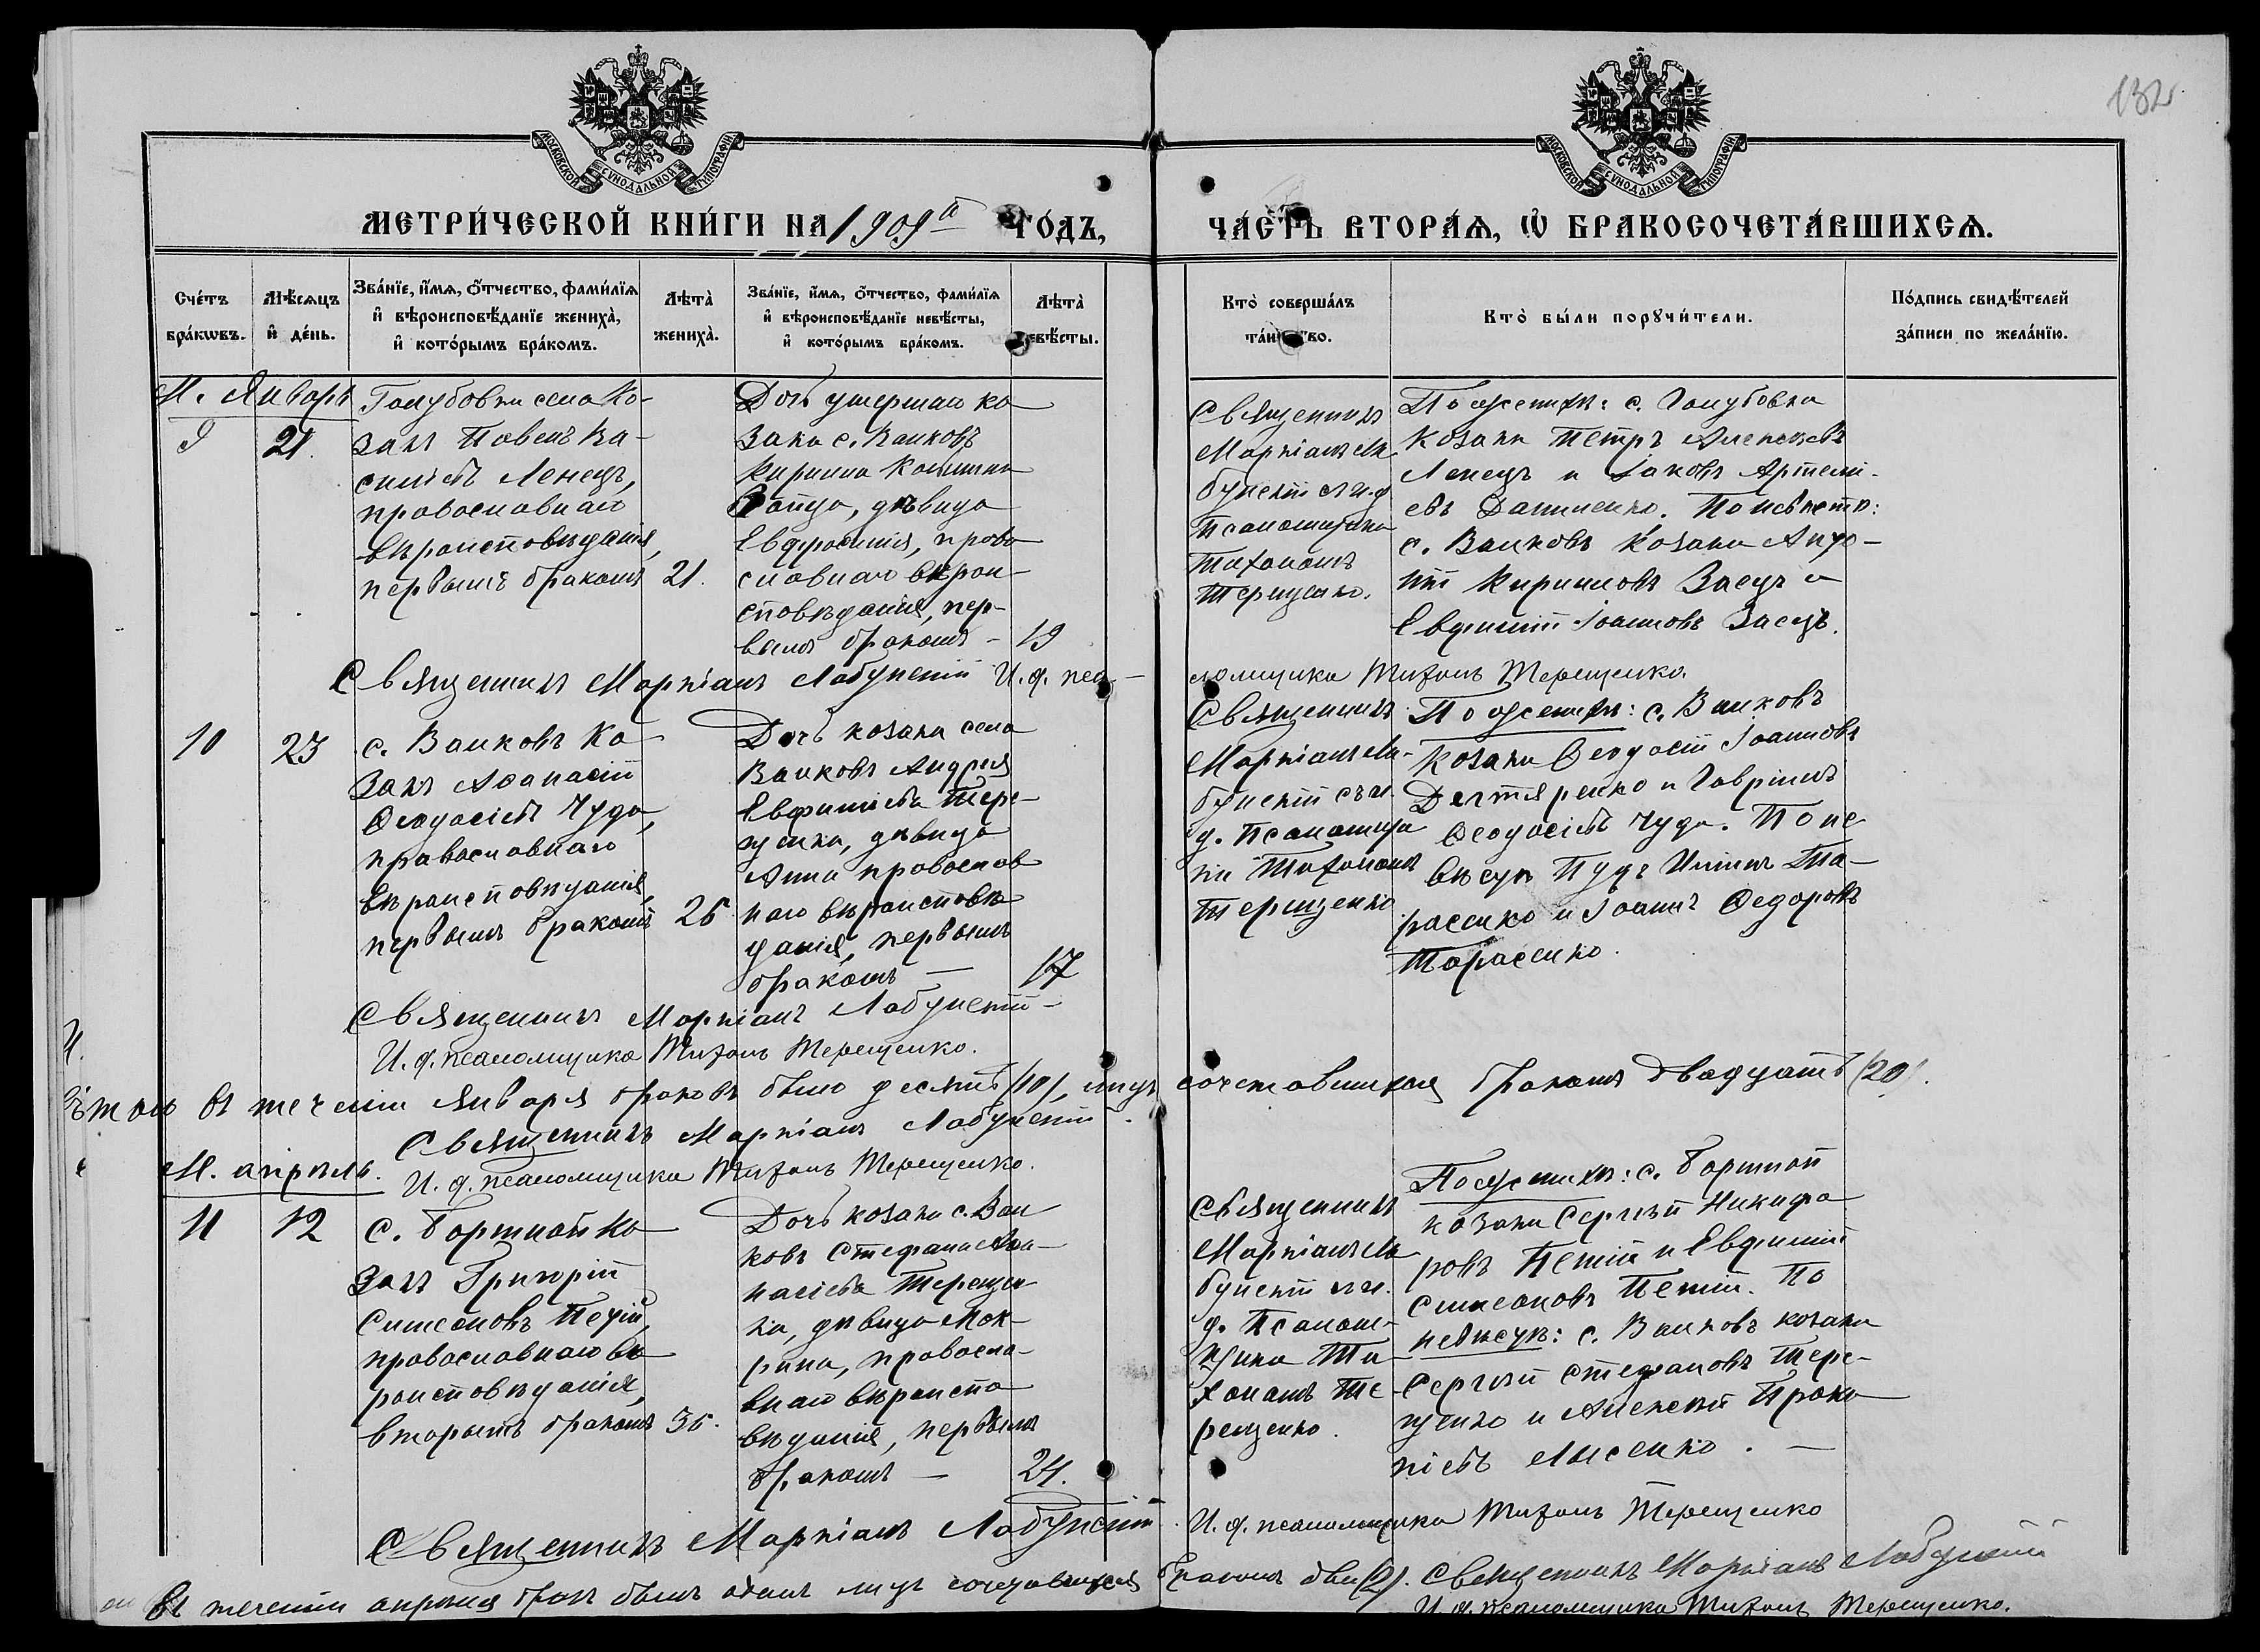 132
МОСКОВСКОЙ СѴНОДАЛЬНОЙ ТИПОГРАФІИ
МОСКОВСКОЙ СѴНОДАЛЬНОЙ ТИПОГРАФІИ
МЕТРИ́ЧЕСКОЙ КНИ́ГИ НА 1909й ГО́ДЪ,
ЧА́СТЬ ВТОРА́Ѧ, Ѽ БРАКОСОЧЕТА́ВШИХСѦ.
Сче́тъ
бра́кѡвъ.
Мѣ́сѧцъ
и҆ де́нь.
Зва́нїе, и҆́мѧ, ѻ҆́тчество, фами́лїѧ
и҆ вѣроисповѣ́данїе жениха̀,
и҆ кото́рымъ бра́комъ.
Лѣта̀
жениха̀.
Зва́нїе, и҆́мѧ, ѻ҆́тчество, фами́лїѧ
и҆ вѣроисповѣ́данїе невѣ́сты,
и҆ кото́рымъ бра́комъ.
Лѣта̀
невѣ́сты.
Кто̀ соверша́лъ
та́инство.
Кто̀ бы́ли порꙋчи́тели.
По́дпись свидѣ́телей
за́писи по жела́нїю.
М. Январь
9
21.
Голубовки села Ко-
закъ Павелъ Ва-
силіевъ Ленецъ,
православнаго
вѣроисповѣданія,
первымъ бракомъ
21.
Дочь умершаго ко
зака с. Валковъ
Кирилла
Зайца, дѣвица
Евфросинія, право
славнаго вѣрои-
сповѣданія, пер-
вымъ бракомъ -
19
Священникъ
Маркіанъ Ла
бунскій съ и. д
Псаломщика
Тихономъ
Терещенко.
По женихѣ: с. Голубовка
козаки Петръ Алексѣевъ
Ленецъ и Іаковъ Артемі-
евъ Даниленко. По невѣстѣ:
с. Валковъ козаки
Кирилловъ Заецъ и
Евфимій Іоанновъ Заецъ.
Священникъ Маркіанъ Лабунскій И. д. пса-
ломщика Тихонъ Терещенко.
10
23
с. Валковъ Ко
закъ Аѳанасій
Ѳеодосіевъ Чуда,
православнаго
вѣроисповѣданія,
первымъ бракомъ
25
Дочь козака села
Валковъ Андрея
Евфиміева Тере-
щенка, дѣвица
Анна православ
наго вѣроисповѣ
данія, первымъ
бракомъ —
17
Священникъ
Маркіанъ Ла-
бунскій съ и.
д. Псаломщи
ка Тихономъ
Терещенко
По женихѣ: с. Валковъ
козаки Ѳеодосій Іоанновъ
Дегтяренко и Гавріилъ
Ѳеодосіевъ Чуда. По не
вѣстѣ Иліинъ Та-
расенко и Іоаннъ Ѳедоровъ
Тарасенко.
Священникъ Маркіанъ Лабунскій
И. д. псаломщика Тихонъ Терещенко.
въ теченіи января браковъ было десять (10), лицъ сочетавшихся бракомъ двадцать (20).
Священникъ Маркіанъ Лабунскій.
И. д. псаломщика Тихонъ Терещенко.
М. апрѣль.
11
12
с. Бортной Ко
закъ Григорій
Симеоновъ
православнаго вѣ
роисповѣданія,
вторымъ бракомъ
35.
Дочь козака с. Вал
ковъ Стефана Аѳа-
насіева Терещен
ка, дѣвица Мак-
рина, правосла-
внаго вѣроиспо
вѣданія, первымъ
бракомъ —
24.
Священникъ
Маркіанъ Ла
бунскій съ и.
д. Псалом-
щика Ти-
хономъ Те-
рещенко.
По женихѣ: с. Бортной
козаки Сергѣй Никифо
ровъ и Евфимій
Симеоновъ По
невѣстѣ: с. Валковъ козаки
Сергѣй Стефановъ Тере-
щенко и Алексѣй Проко
піевъ Лысенко. —
Священникъ Маркіанъ Лабунскій
И. д. псаломщика Тихонъ Терещенко
Въ теченіи апрѣля бракъ былъ одинъ лицъ сочетавшихся бракомъ два (2). Священникъ Маркіанъ Лабунскій
И. д. псаломщика Тихонъ Терещенко.